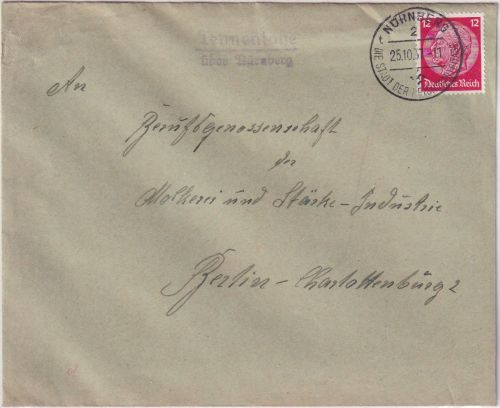 über Nürnberg
NÜRNBERG
2
25.10.37.-11
DIE STADT DER
12 12
Deutsches Reich
An
Berufsgenossenschaft
der
Molkerei und Stärke-Industrie
Berlin-Charlottenburg 2